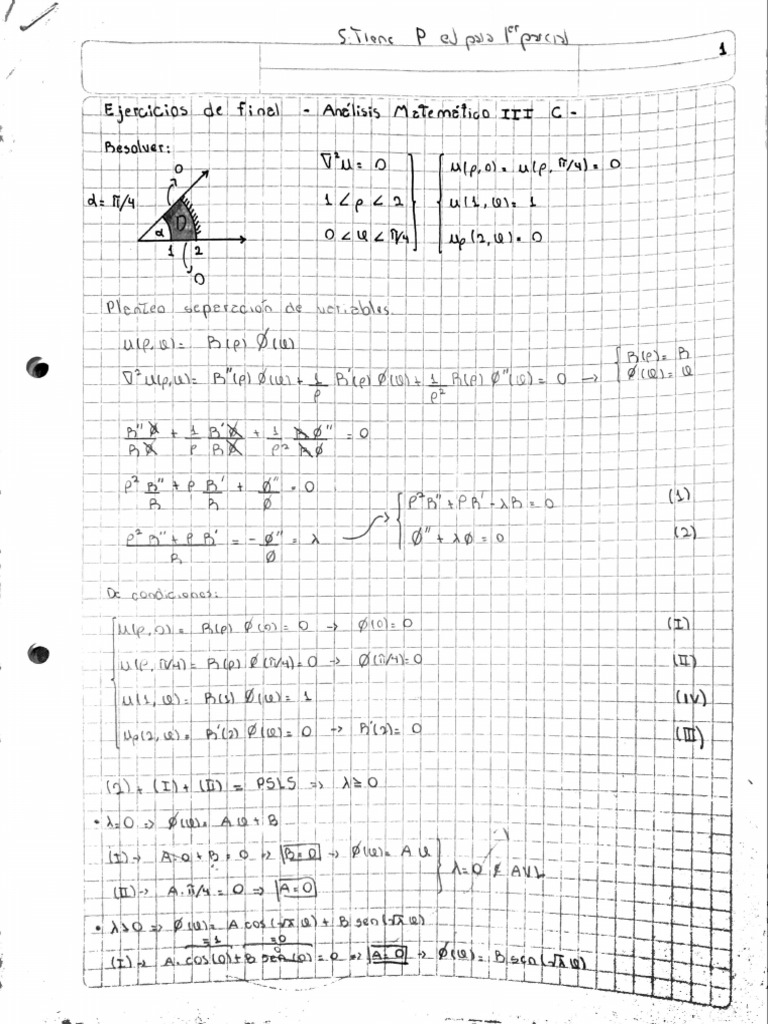 S. Tiene P ej para 1er parcial
1
Ejercicios de final - Análisis Matemático III C -
Resolver:
α = π/4
0
D
α
1 2
0
∇²u = 0
1 < ρ < 2
0 < φ < π/4
u(ρ,0) = u(ρ, π/4) = 0
u(1, φ) = 1
uρ(2, φ) = 0
Planteo separación de variables.
u(ρ, φ) = R(ρ) Ø(φ)
∇²u(ρ,φ) = R''(ρ) Ø(φ) + 1/ρ R'(ρ) Ø(φ) + 1/ρ² R(ρ) Ø''(φ) = 0 → { R(ρ) = R
Ø(φ) = φ
R''Ø/RØ + 1/ρ R'Ø/RØ + 1/ρ² RØ''/RØ = 0
ρ² R''/R + ρ R'/R + Ø''/Ø = 0
ρ² R'' + ρ R'/R = - Ø''/Ø = λ → { ρ²R'' + ρR' - λR = 0 (1)
Ø'' + λØ = 0 (2)
De condiciones:
u(ρ,0) = R(ρ) Ø(0) = 0 → Ø(0) = 0 (I)
u(ρ, π/4) = R(ρ) Ø(π/4) = 0 → Ø(π/4) = 0 (II)
u(1, φ) = R(1) Ø(φ) = 1 (IV)
uρ(2, φ) = R'(2) Ø(φ) = 0 → R'(2) = 0 (III)
(2) + (I) + (II) = PSLS ⇒ λ ≥ 0
• λ=0 ⇒ Ø(φ) = Aφ + B
(I) → A·0 + B = 0 ⇒ B=0 → Ø(φ) = Aφ
(II) → A·π/4 = 0 ⇒ A=0
λ=0 ∉ AVL
• λ>0 ⇒ Ø(φ) = A cos(√λ φ) + B sen(√λ φ)
=1 =0
(I) → A·cos(0) + B sen(0) = 0 ⇒ A=0 → Ø(φ) = B sen(√λ φ)